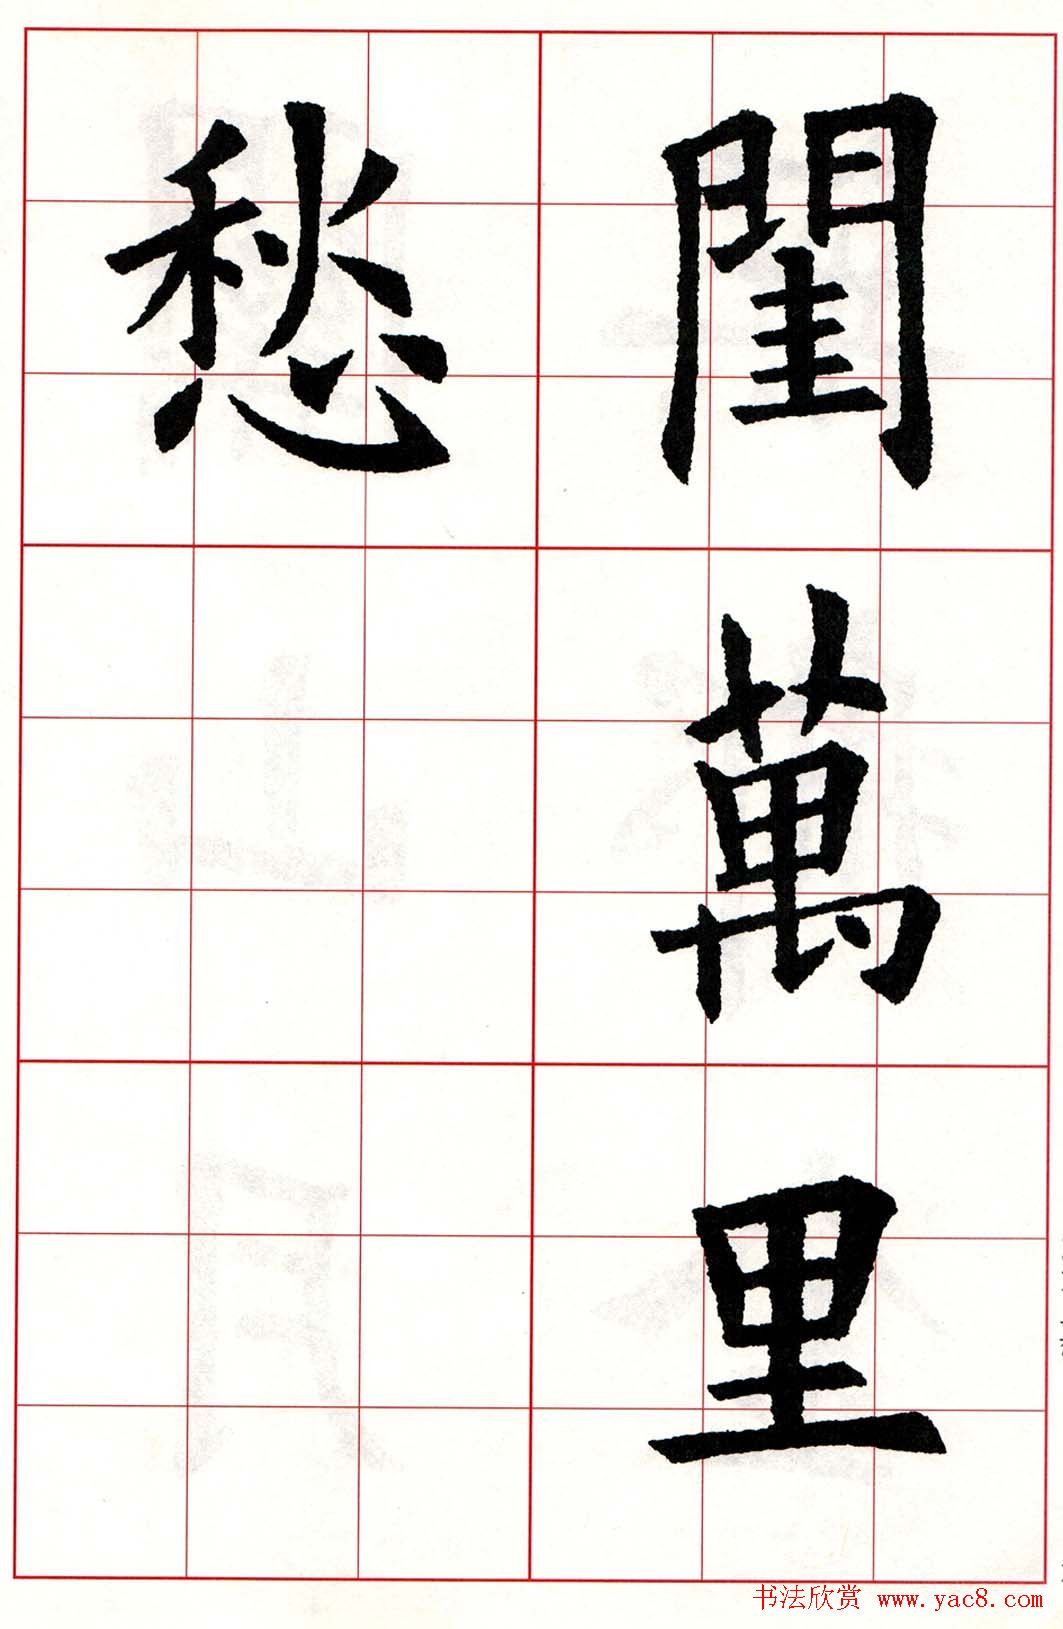 閨萬里
愁
书法欣赏 www.yac8.com